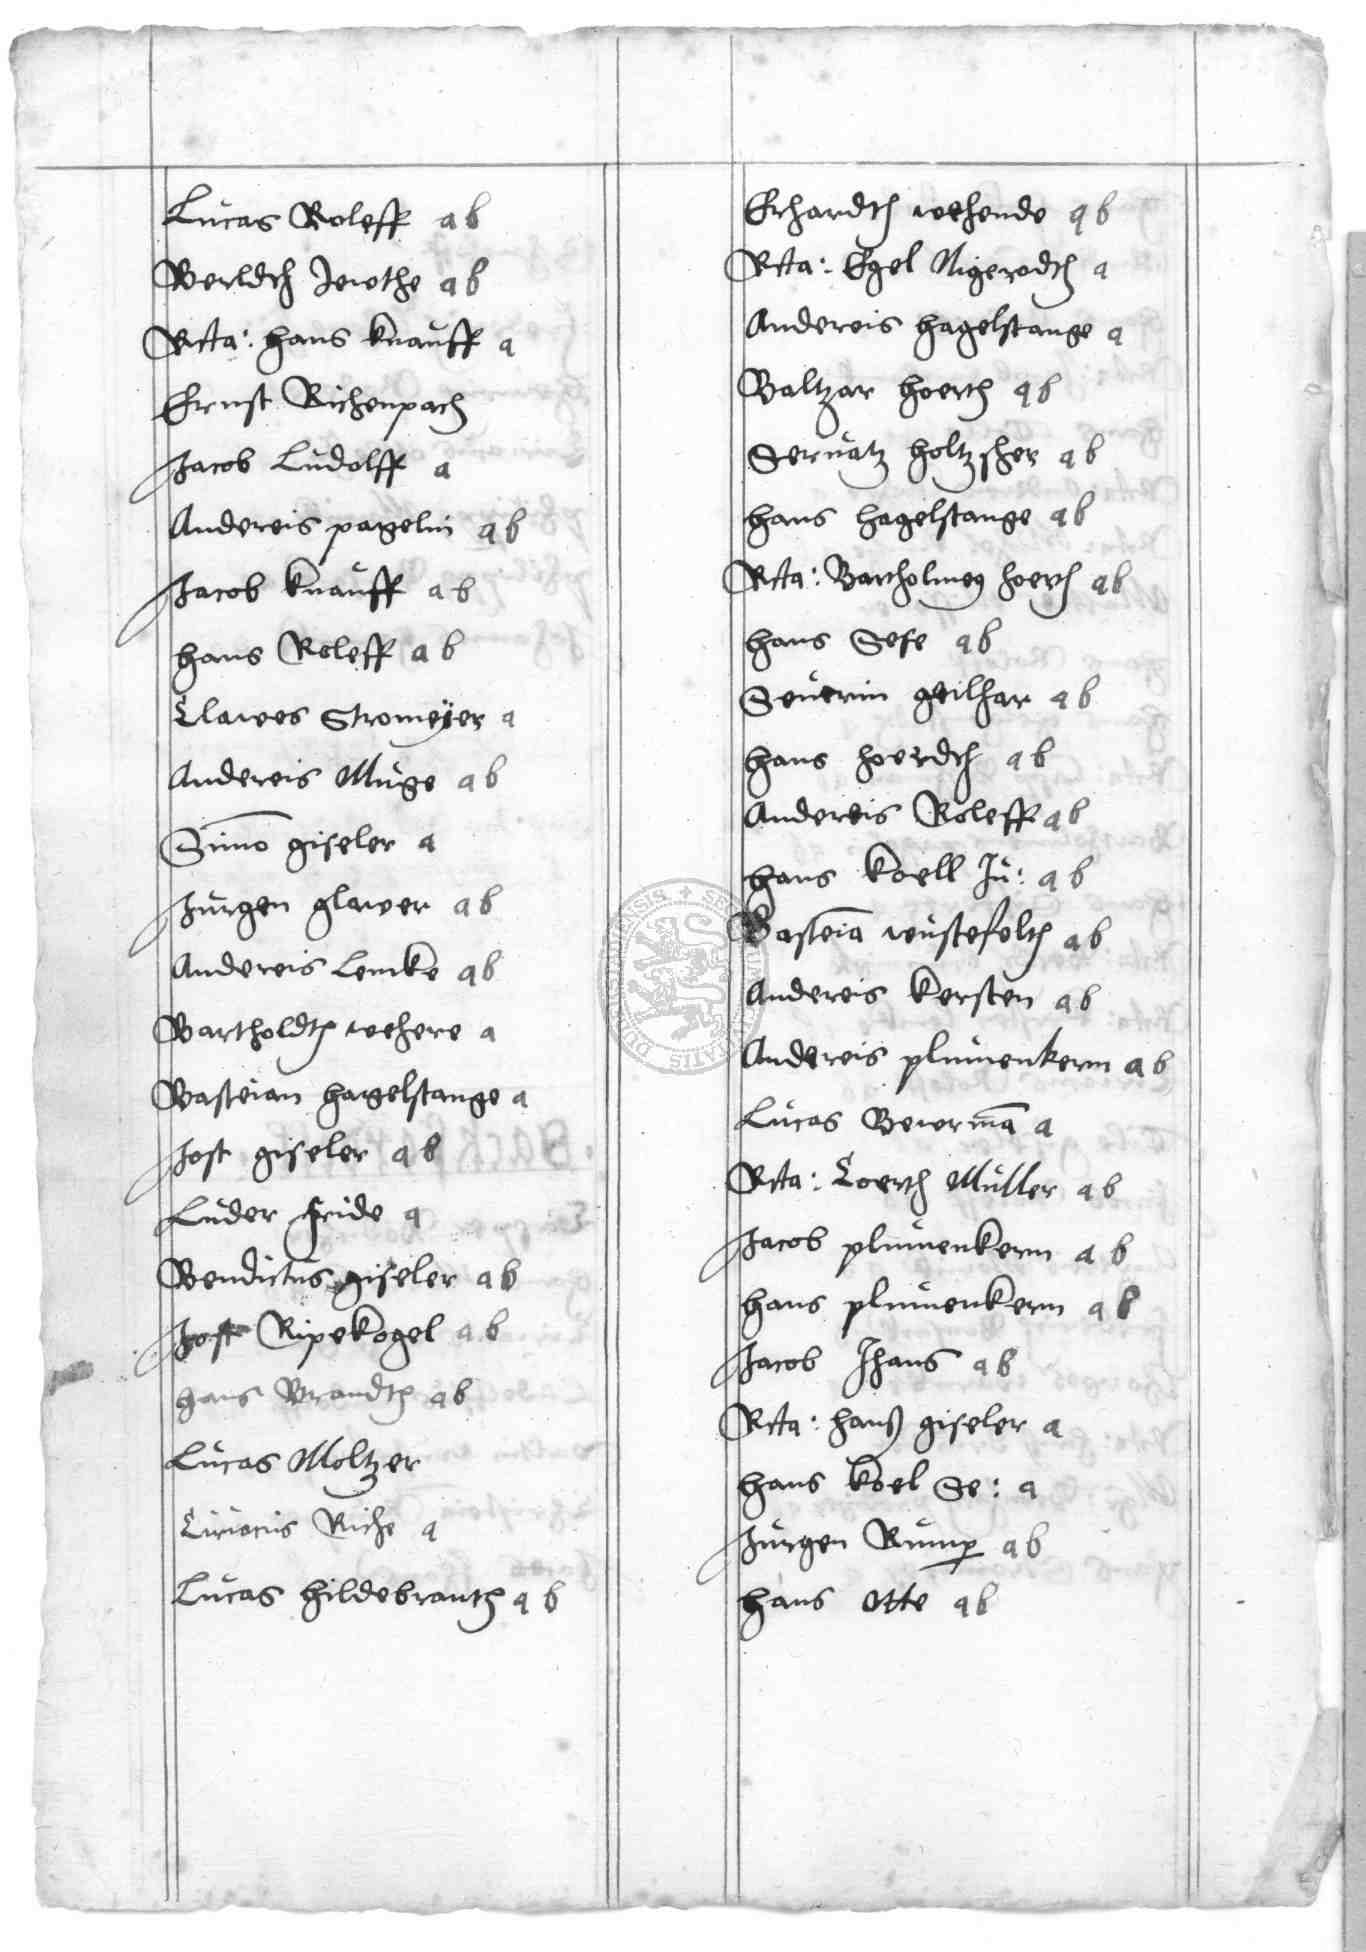 Lucas Roleff a b
Berldth Jerothe a b
Rcta: hans knauff a
Ernst Richenpach
Jacob Ludolff a
Andereis pagelin a b
Jacob knauff a b
hans Roleff a b
Clawes Stromeÿer a
Andereis Muge a b
Simō giseler a
Jurgen glawer a b
Andereis Lemke a b
Bartholdth wehere a
Basteian hagelstange a
Jost giseler a b
Luder fride a
Bendictus giseler a b
Jost Ripekogel a b
hans Brandth a b
Lucas Moltzer
Ciriacus Riche a
Lucas hildebranth a b
Erhardth wehende a b
Rcta: Egel Nigerodth a
Andereis hagelstange a
Baltzar hoerth a b
Seruatz holtzsher a b
hans hagelstange a b
Rcta: Bartholmeg hoerth a b
hans Sefe a b
Seuerin geilhar a b
hans hoerdth a b
Andereis Roleff a b
hans koell Ju: a b
Basteiā wustefelth a b
Andereis kersten a b
Andereis plumenkern a b
Lucas Beiermā a
Rcta: Coerth Müller a b
Jacob plumenkern a b
hans plumenkern a b
Jacob Jhans a b
Rcta: hanß giseler a
hans koel Se: a
Jurgen Rump a b
hans otte a b